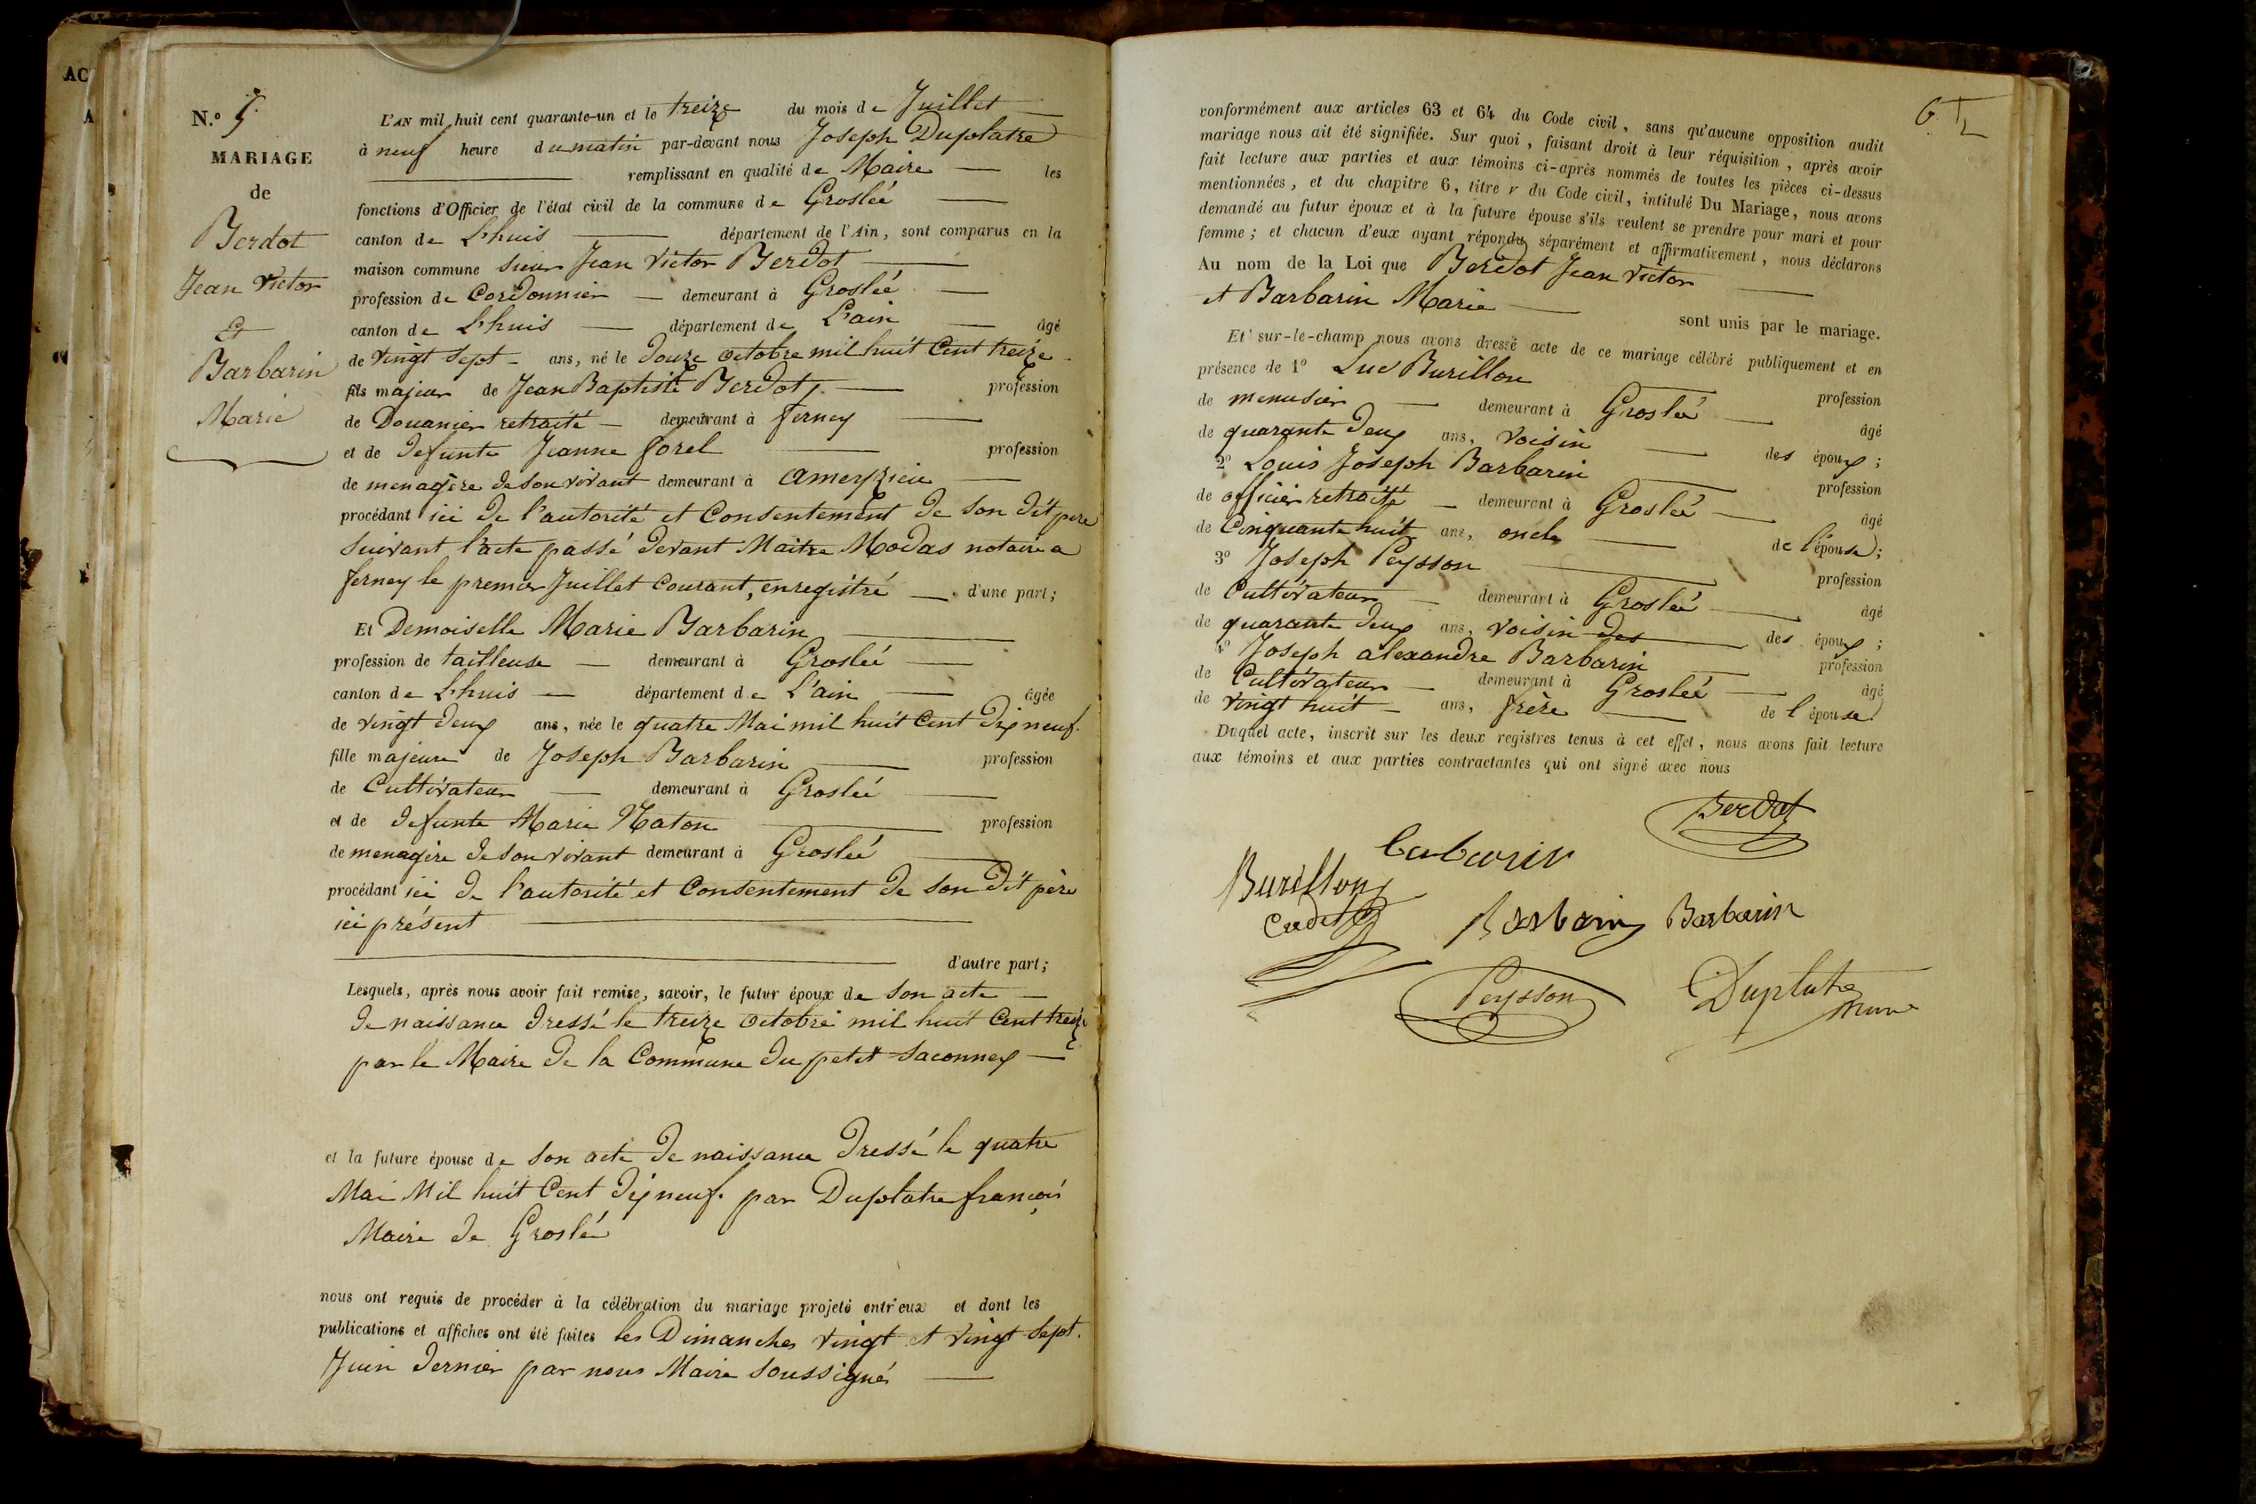 AC
A
N.º 5
MARIAGE
de
Berdot
Jean Victor
Et
Barbarin
Marie
L'AN mil huit cent quarante-un et le treize du mois de Juillet
à neuf heure du matin par-devant nous Joseph Duplatre
remplissant en qualité de Maire les
fonctions d'Officier de l'état civil de la commune de Groslée
canton de Lhuis département de l'Ain, sont comparus en la
maison commune sieur Jean Victor Berdot
profession de Cordonnier demeurant à Groslée
canton de Lhuis département de L'ain âgé
de vingt sept ans, né le douze octobre mil huit Cent treize
fils majeur de Jean Baptiste Berdot profession
de Douanier retraité demeurant à ferney
et de defunte Jeanne forel profession
de menagère de son vivant demeurant à ameyzieu
procédant ici de l'autorité et Consentement de son dit père
suivant l'acte passé devant Maître Modas notaire a
ferney le premier Juillet Courant, enregistré d'une part;
Et Demoiselle Marie Barbarin
profession de tailleuse demeurant à Groslée
canton de Lhuis département de L'ain âgée
de vingt deux ans, née le quatre Mai mil huit Cent dix neuf.
fille majeure de Joseph Barbarin profession
de Cultivateur demeurant à Groslée
et de defunte Marie Naton profession
de menagère de son vivant demeurant à Groslée
procédant ici de l'autorité et Consentement de son dit père
ici présent
d'autre part;
Lesquels, après nous avoir fait remise, savoir, le futur époux de son acte
de naissance dressé le treize octobre mil huit Cent treize
par le Maire de la Commune du petit saconnex
et la future épouse de son acte de naissance dressé le quatre
Mai Mil huit Cent dix neuf. par Duplatre françois
Maire de Groslée
nous ont requis de procéder à la célébration du mariage projeté entr'eux et dont les
publications et affiches ont été faites les Dimanches vingt et vingt sept.
Juin dernier par nous Maire soussigné
6
conformément aux articles 63 et 64 du Code civil, sans qu'aucune opposition audit
mariage nous ait été signifiée. Sur quoi, faisant droit à leur réquisition, après avoir
fait lecture aux parties et aux témoins ci-après nommés de toutes les pièces ci-dessus
mentionnées, et du chapitre 6, titre v du Code civil, intitulé Du Mariage, nous avons
demandé au futur époux et à la future épouse s'ils veulent se prendre pour mari et pour
femme; et chacun d'eux ayant répondu séparément et affirmativement, nous déclarons
Au nom de la Loi que Berdot Jean Victor
et Barbarin Marie
sont unis par le mariage.
Et sur-le-champ nous avons dressé acte de ce mariage célébré publiquement et en
présence de 1º Luc Burillon profession
de menusier demeurant à Groslée âgé
de quarante deux ans, voisin des époux;
2º Louis Joseph Barbarin profession
de officier retraité demeurant à Groslée âgé
de Cinquante huit ans, oncle de l'épouse;
3º Joseph Peysson profession
de Cultivateur demeurant à Groslée âgé
de quarante deux ans, voisin des des époux;
4º Joseph alexandre Barbarin profession
de Cultivateur demeurant à Groslée âgé
de vingt huit ans, frère de l'épouse
Duquel acte, inscrit sur les deux registres tenus à cet effet, nous avons fait lecture
aux témoins et aux parties contractantes qui ont signé avec nous
Berdot
barbarin
Burillon
Cadet
Barbarin Barbarin
Peysson Duplatre
Maire